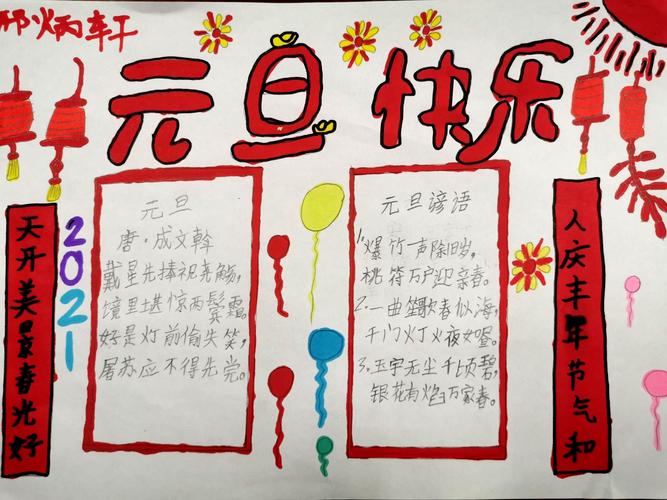 邢炳轩
元旦快乐
天开美景春光好
2021
元旦
唐·成文斡
戴星先捧祝尧觞,
境里堪惊两鬓霜
好是灯前偷失笑,
屠苏应不得先尝。
元旦谚语
1、爆竹一声除旧岁,
桃符万户迎亲春。
2、一曲笙歌春似海,
千门灯火夜如昼。
3、玉宇无尘千顷碧,
银花有焰万家春。
人庆丰年节气和